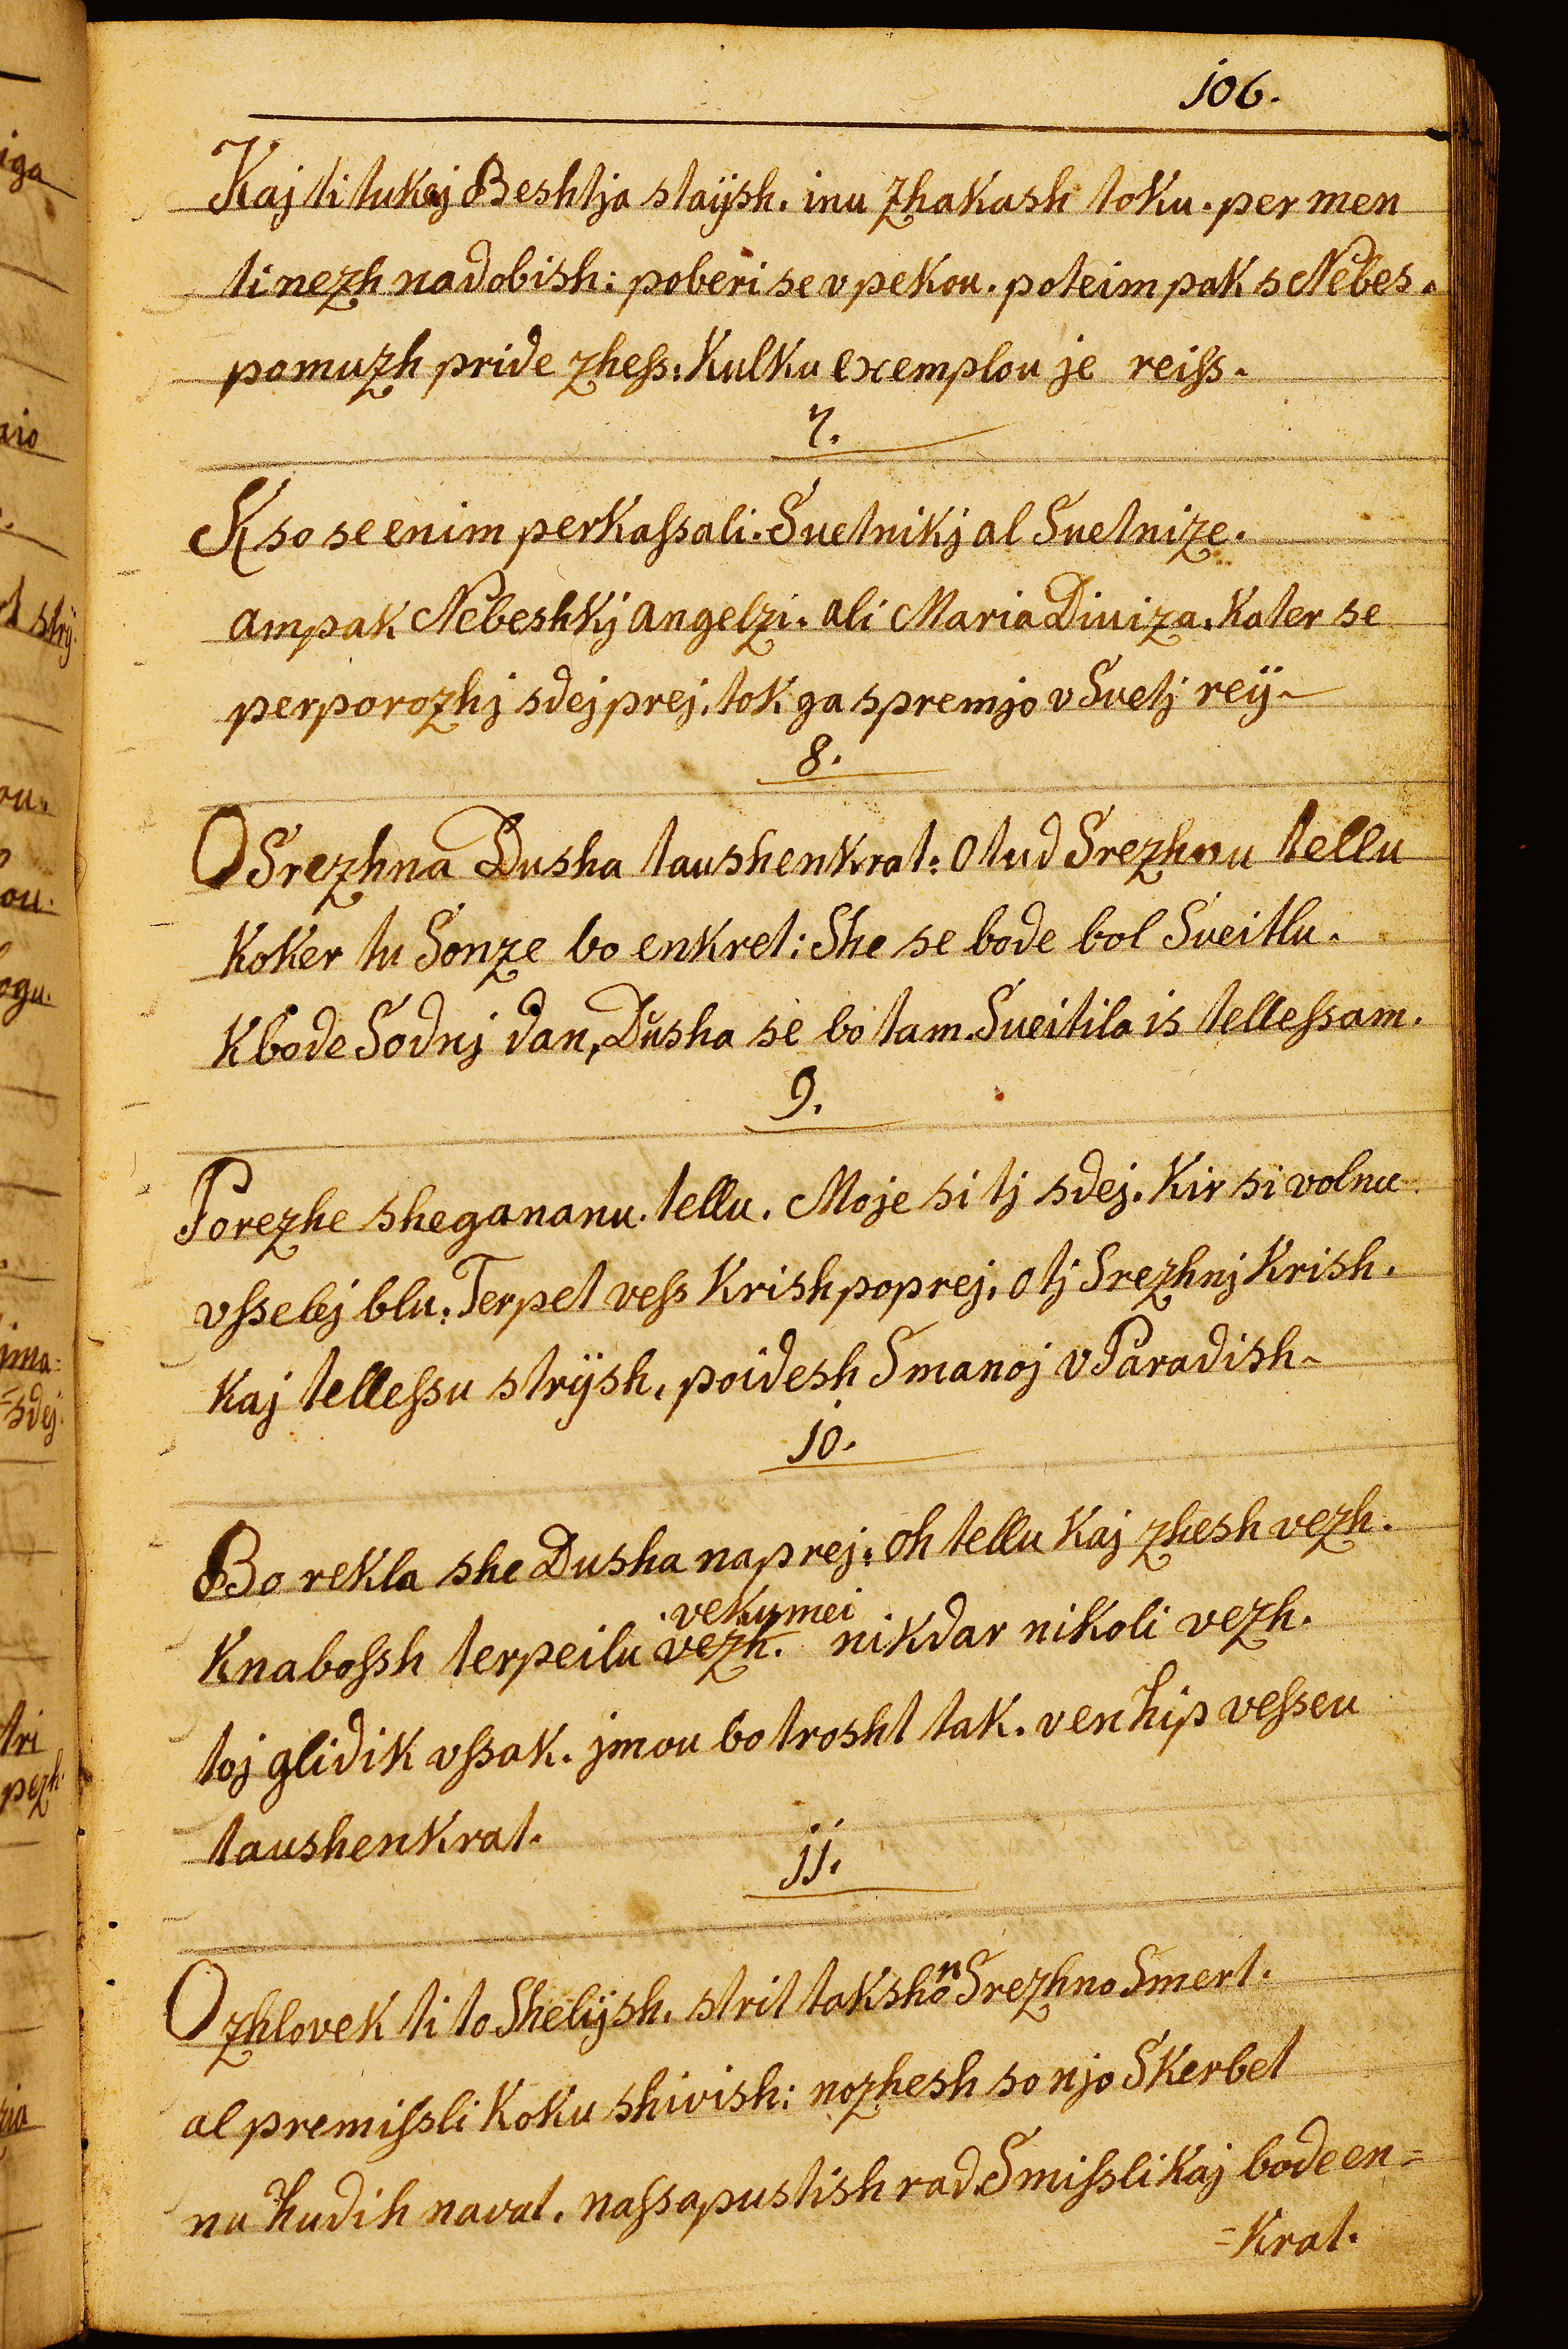 106.
Kaj ti tukaj Beshtja staÿsh. inu zhakash toku. per men
ti nezh nadobish: poberi se v pekou. poteim pak s Nebes.
pomuzh pride zhess: Kulku exemplou je reiss.
7.
K so se enim perkassali. Suetnikj al Suetnize.
ampak Nebeshkj angelzi. ali Maria Diuiza. Kater se
perporozhj sdej prej. tok ga spremjo v Suetj reÿ
8.
O Srezhna Dusha taushenkrat: O tud Srezhnu tellu
Koker tu Sonze bo enkret: She se bode bol Sueitlu.
K bode Sodnj dan, Dusha se bo tam. Sueitila is tellessam.
9.
Porezhe shegananu. tellu. Moje si tj sdej. Kir si volnu
vsselej blu: Terpet vess Krish poprej. O tj Srezhnj Krish.
Kaj tellessu strÿsh, poidesh Smanoj v Paradish
10.
Bo rekla she Dusha naprej: oh tellu Kaj zhesh vezh.
vekumei
K nabossh terpeilu vezh. nikdar nikoli vezh.
toj glidik vssak. jmou bo trosht tak. ven hip vesseu
taushenkrat.
11.
O zhlovek ti to Shelÿsh. strit takshon Srezhno Smert.
al premissli Koku shivish: nozhesh so njo Skerbet
nu hudih navat. nassapustish rad. Smissli Kaj bode en=
=Krat.